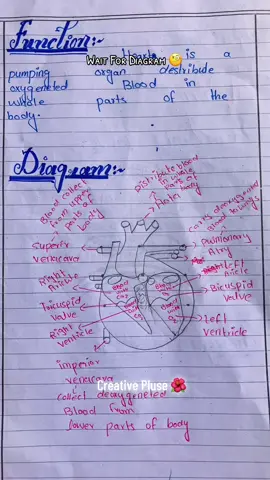 Function:-
Wait For Diagram 🧐
Heart is a
pumping organ destribute
oxygeneted Blood in
whole parts of the
body.
Diagram:-
Blood collect
from upper
parts of
body
Distribute blood
in whole
parts of
body
Aorta
carries deoxygenated
blood to lungs
Superir
venacava
Pulmonary
Atry
Right
Auicle
Left
Auicle
Tricuspid
valve
Bicuspid
valve
Right
venticle
Left
ventricle
imperior
venacava
collect deoxygeneted
Blood from
lower parts of body
Creative Pluse 🌺